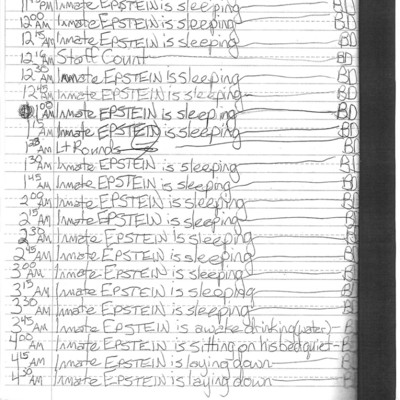 11 45 PM Inmate EPSTEIN is sleeping BD
12 00 AM Inmate EPSTEIN is sleeping BD
12 15 AM Inmate EPSTEIN is sleeping BD
12 16 AM Staff Count BD
12 30 AM Inmate EPSTEIN is sleeping BD
12 45 AM Inmate EPSTEIN is sleeping BD
1 00 AM Inmate EPSTEIN is sleeping BD
1 15 AM Inmate EPSTEIN is sleeping BD
1 23 AM Lt Rounds BD
1 30 AM Inmate EPSTEIN is sleeping BD
1 45 AM Inmate EPSTEIN is sleeping BD
2 00 AM Inmate EPSTEIN is sleeping BD
2 15 AM Inmate EPSTEIN is sleeping BD
2 30 AM Inmate EPSTEIN is sleeping BD
2 45 AM Inmate EPSTEIN is sleeping BD
3 00 AM Inmate EPSTEIN is sleeping BD
3 15 AM Inmate EPSTEIN is sleeping BD
3 30 AM Inmate EPSTEIN is sleeping BD
3 45 AM Inmate EPSTEIN is awake drinking (water) BD
4 00 AM Inmate EPSTEIN is sitting on his bed quiet BD
4 15 AM Inmate EPSTEIN is laying down BD
4 30 AM Inmate EPSTEIN is laying down BD